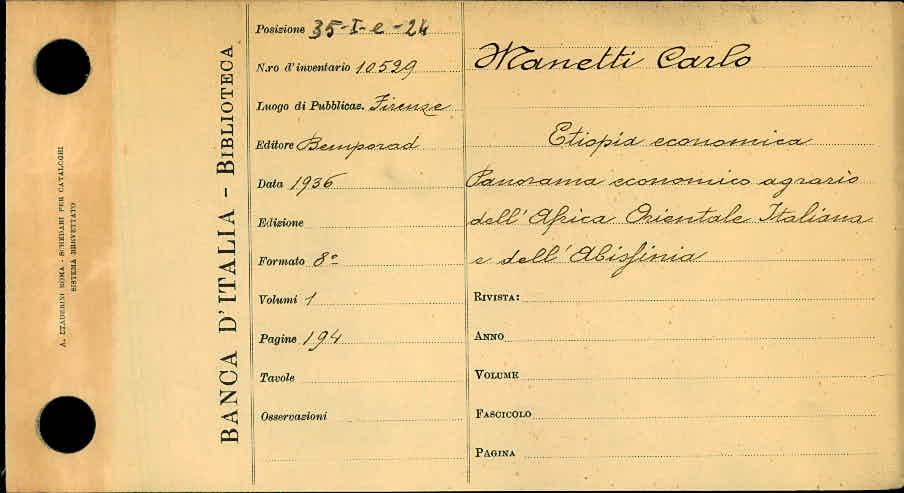 A. STADERINI ROMA - SCHEDARI PER CATALOGHI
SISTEMA BREVETTATO
BANCA D'ITALIA - BIBLIOTECA
Posizione 35-I-e-24
N.ro d'inventario 10529
Luogo di Pubblicaz. Firenze
Editore Bemporad
Data 1936
Edizione
Formato 8°
Volumi 1
Pagine 194
Tavole
Osservazioni
Manetti Carlo
Etiopia economica
Panorama economico agrario
dell'Africa Orientale Italiana
e dell'Abissinia
RIVISTA:
ANNO
VOLUME
FASCICOLO
PAGINA